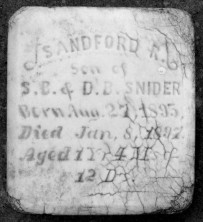 SANDFORD A.
Son of
S.B. & D.B. SNIDER
Born Aug. 27, 1895,
Died Jan. 8, 1897
Aged 1 Yr 4 M's &
12 Ds.